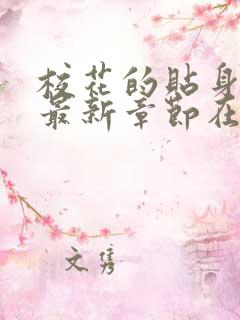 校花的贴身
最新章节在
文隽